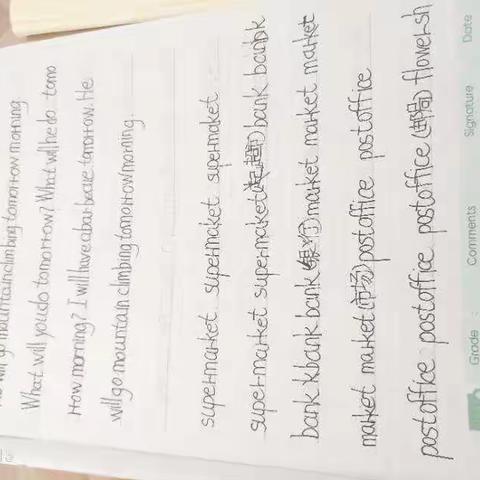 will go mountain climbing tomorrow morning
What will you do tomorrow? What will he do tomo
rrow morning? I will have a barbecue tomorrow. He
will go mountain climbing tomorrow morning.
supermarket supermaket supermaket
supermarket supermaket(超市)bank bank
bank kbank bank(银行)market market market
market market(市场)postoffice postoffice
postoffice postoffice postoffice(邮局)flower sh
Grade : Comments Signature Date